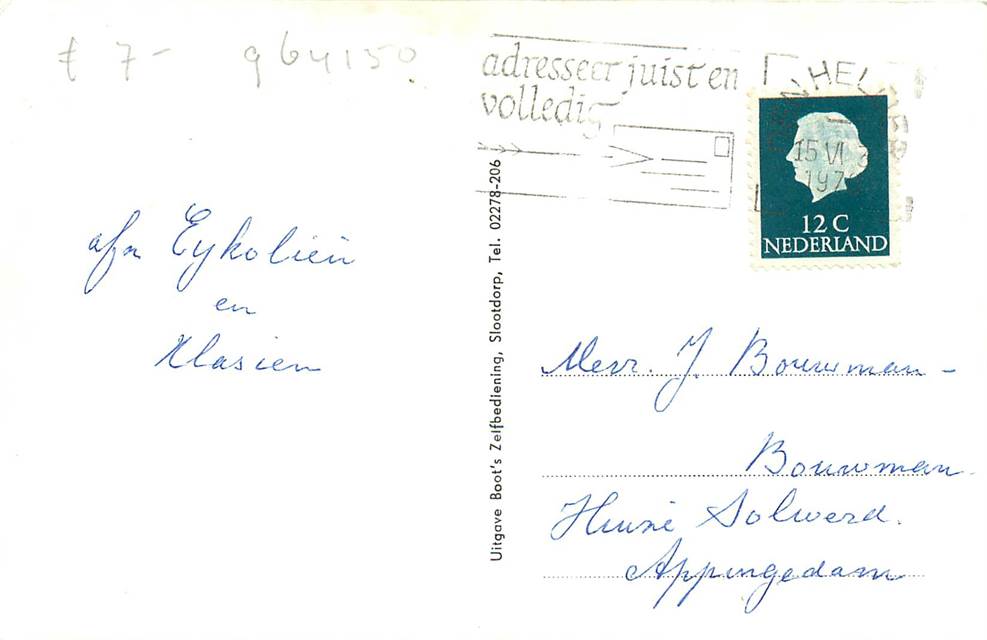 £ 7- 964150
adresseer juist en
volledig
DEN HELDER
15 VI
197
12 C
NEDERLAND
afz Eykolien
en
Klasien
Uitgave Boot's Zelfbediening, Slootdorp, Tel. 02278-206
Mevr. J. Bouwman -
Bouwman
Huize Solwerd.
Appingedam